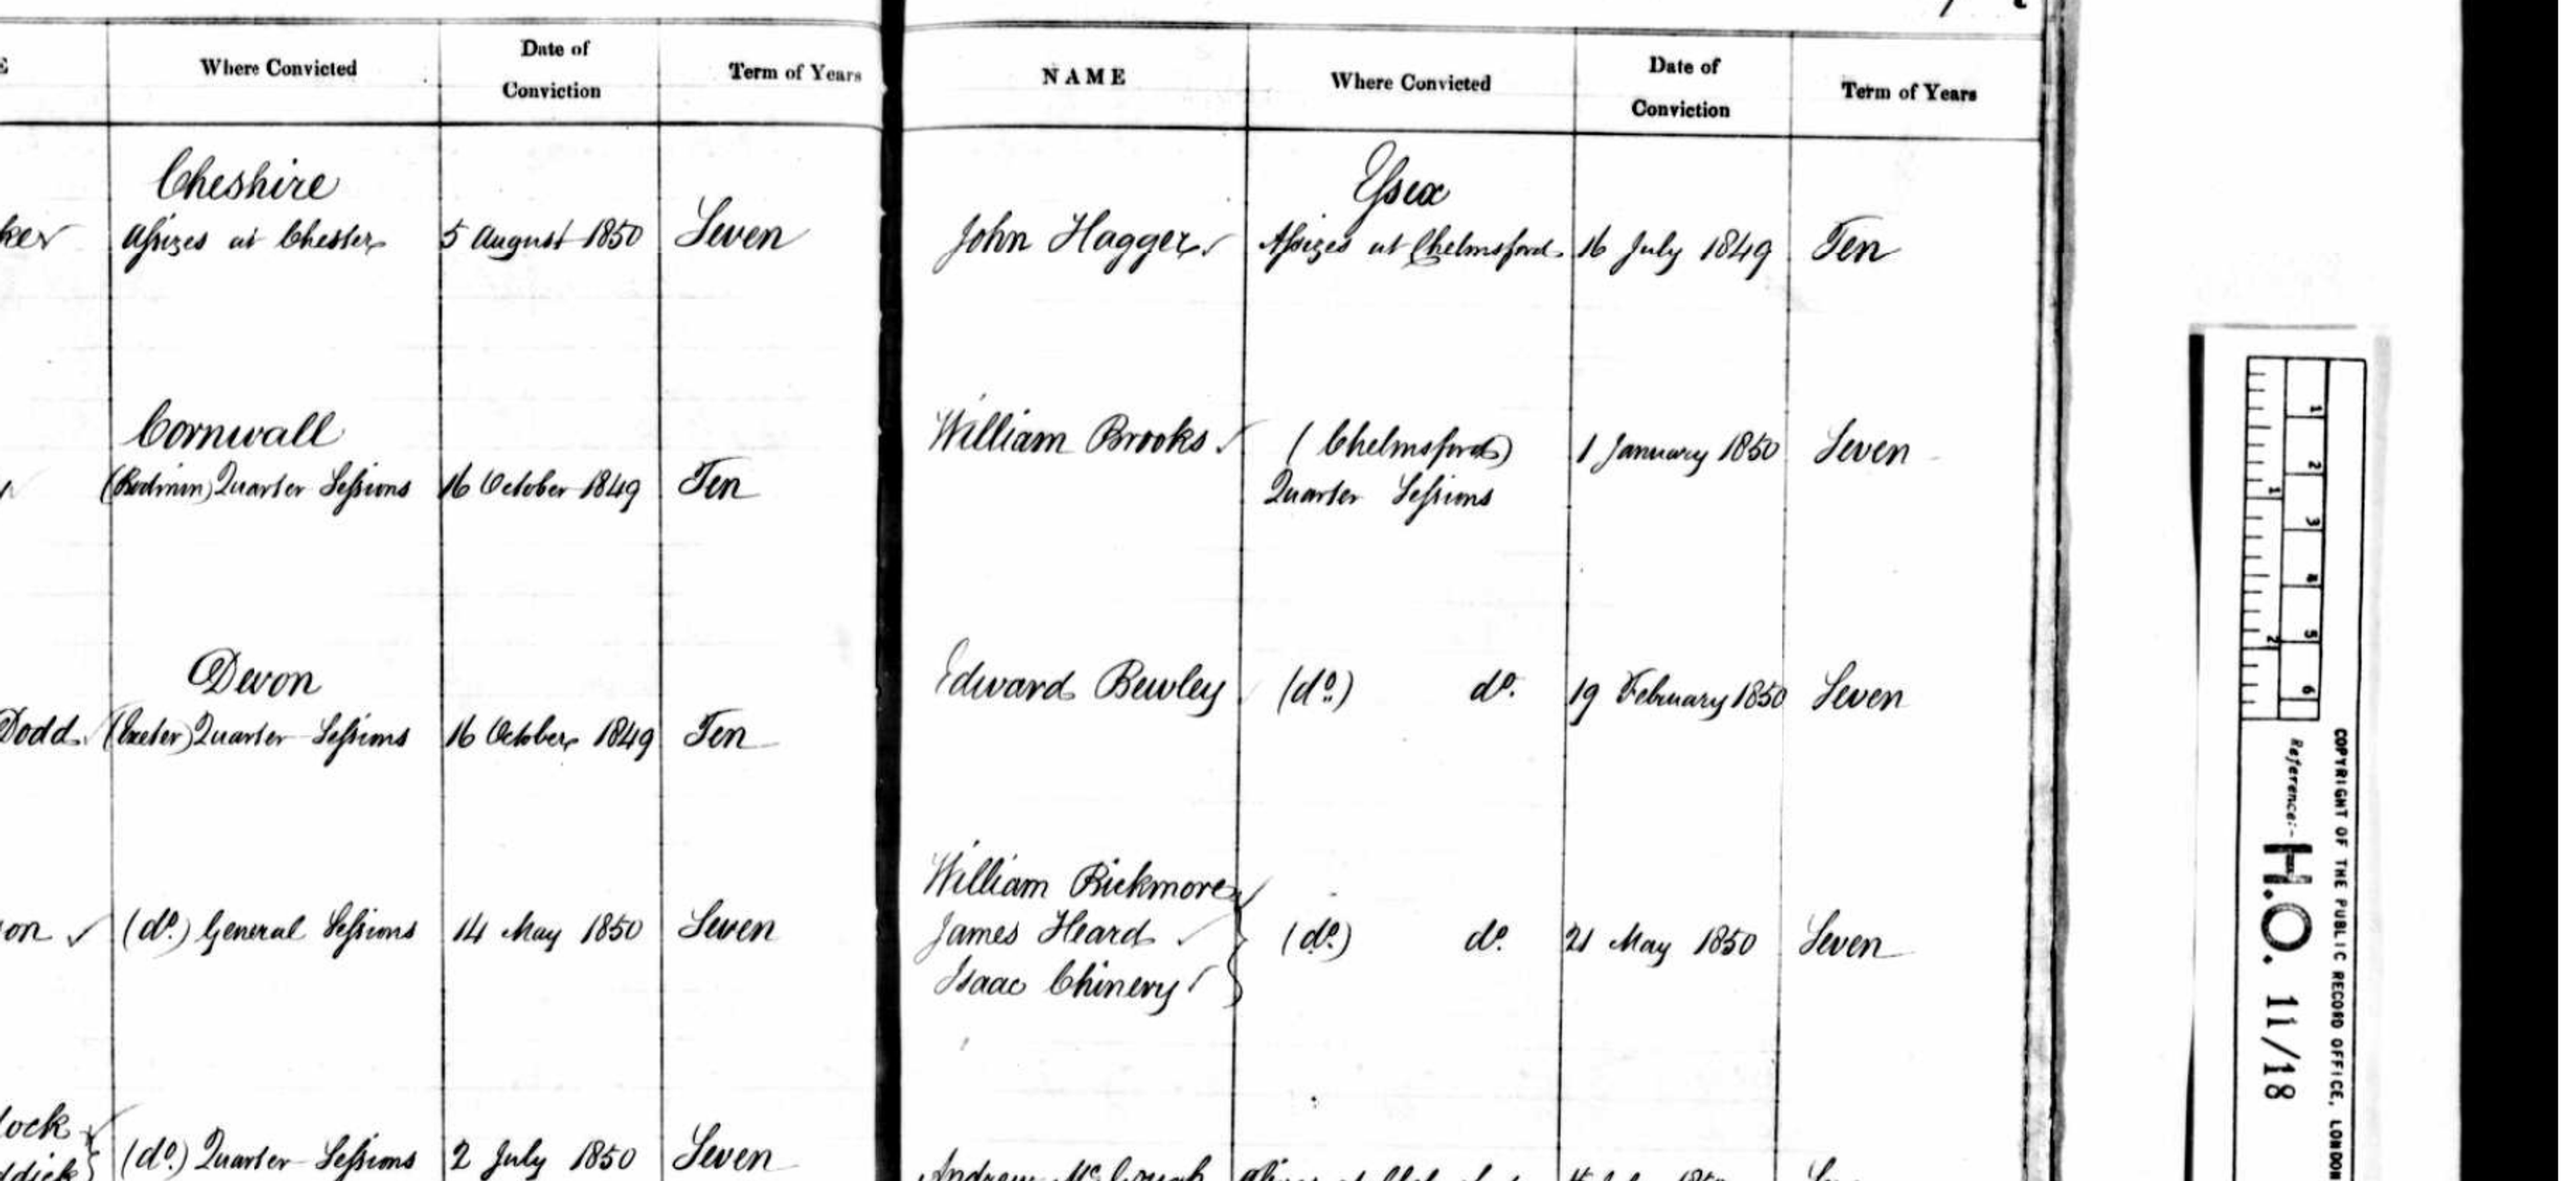 Where Convicted
Date of
Conviction
Term of Years
Cheshire
Assizes at Chester
5 August 1850
Seven
Cornwall
(Bodmin) Quarter Sessions
16 October 1849
Ten
Devon
Dodd
(Exeter) Quarter Sessions
16 October 1849
Ten
(do.) General Sessions
14 May 1850
Seven
(do.) Quarter Sessions
2 July 1850
Seven
NAME
Where Convicted
Date of
Conviction
Term of Years
Essex
John Hagger
Assizes at Chelmsford
16 July 1849
Ten
William Brooks
(Chelmsford)
Quarter Sessions
1 January 1850
Seven
Edward Bewley
(do.) do.
19 February 1850
Seven
William Rickmore
James Heard
Isaac Chinery
(do.) do.
21 May 1850
Seven
Andrew
1 2 3 4 5 6
1 2
Reference:-
H.O. 11/18
COPYRIGHT OF THE PUBLIC RECORD OFFICE, LONDON